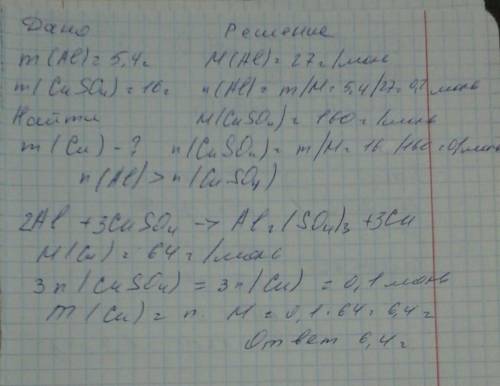 Дано Решение
m(Al)=5,4г M(Al)=27г/моль
m(CuSO4)=16г n(Al)=m/M=5,4/27=0,2 моль
Найти M(CuSO4)=160г/моль
m(Cu)-? n(CuSO4)=m/M=16/160=0,1моль
n(Al)>n(CuSO4)
2Al+3CuSO4→Al2(SO4)3+3Cu
M(Cu)=64г/моль
3n(CuSO4)=3n(Cu)=0,1моль
m(Cu)=n·M=0,1·64=6,4г
Ответ 6,4г